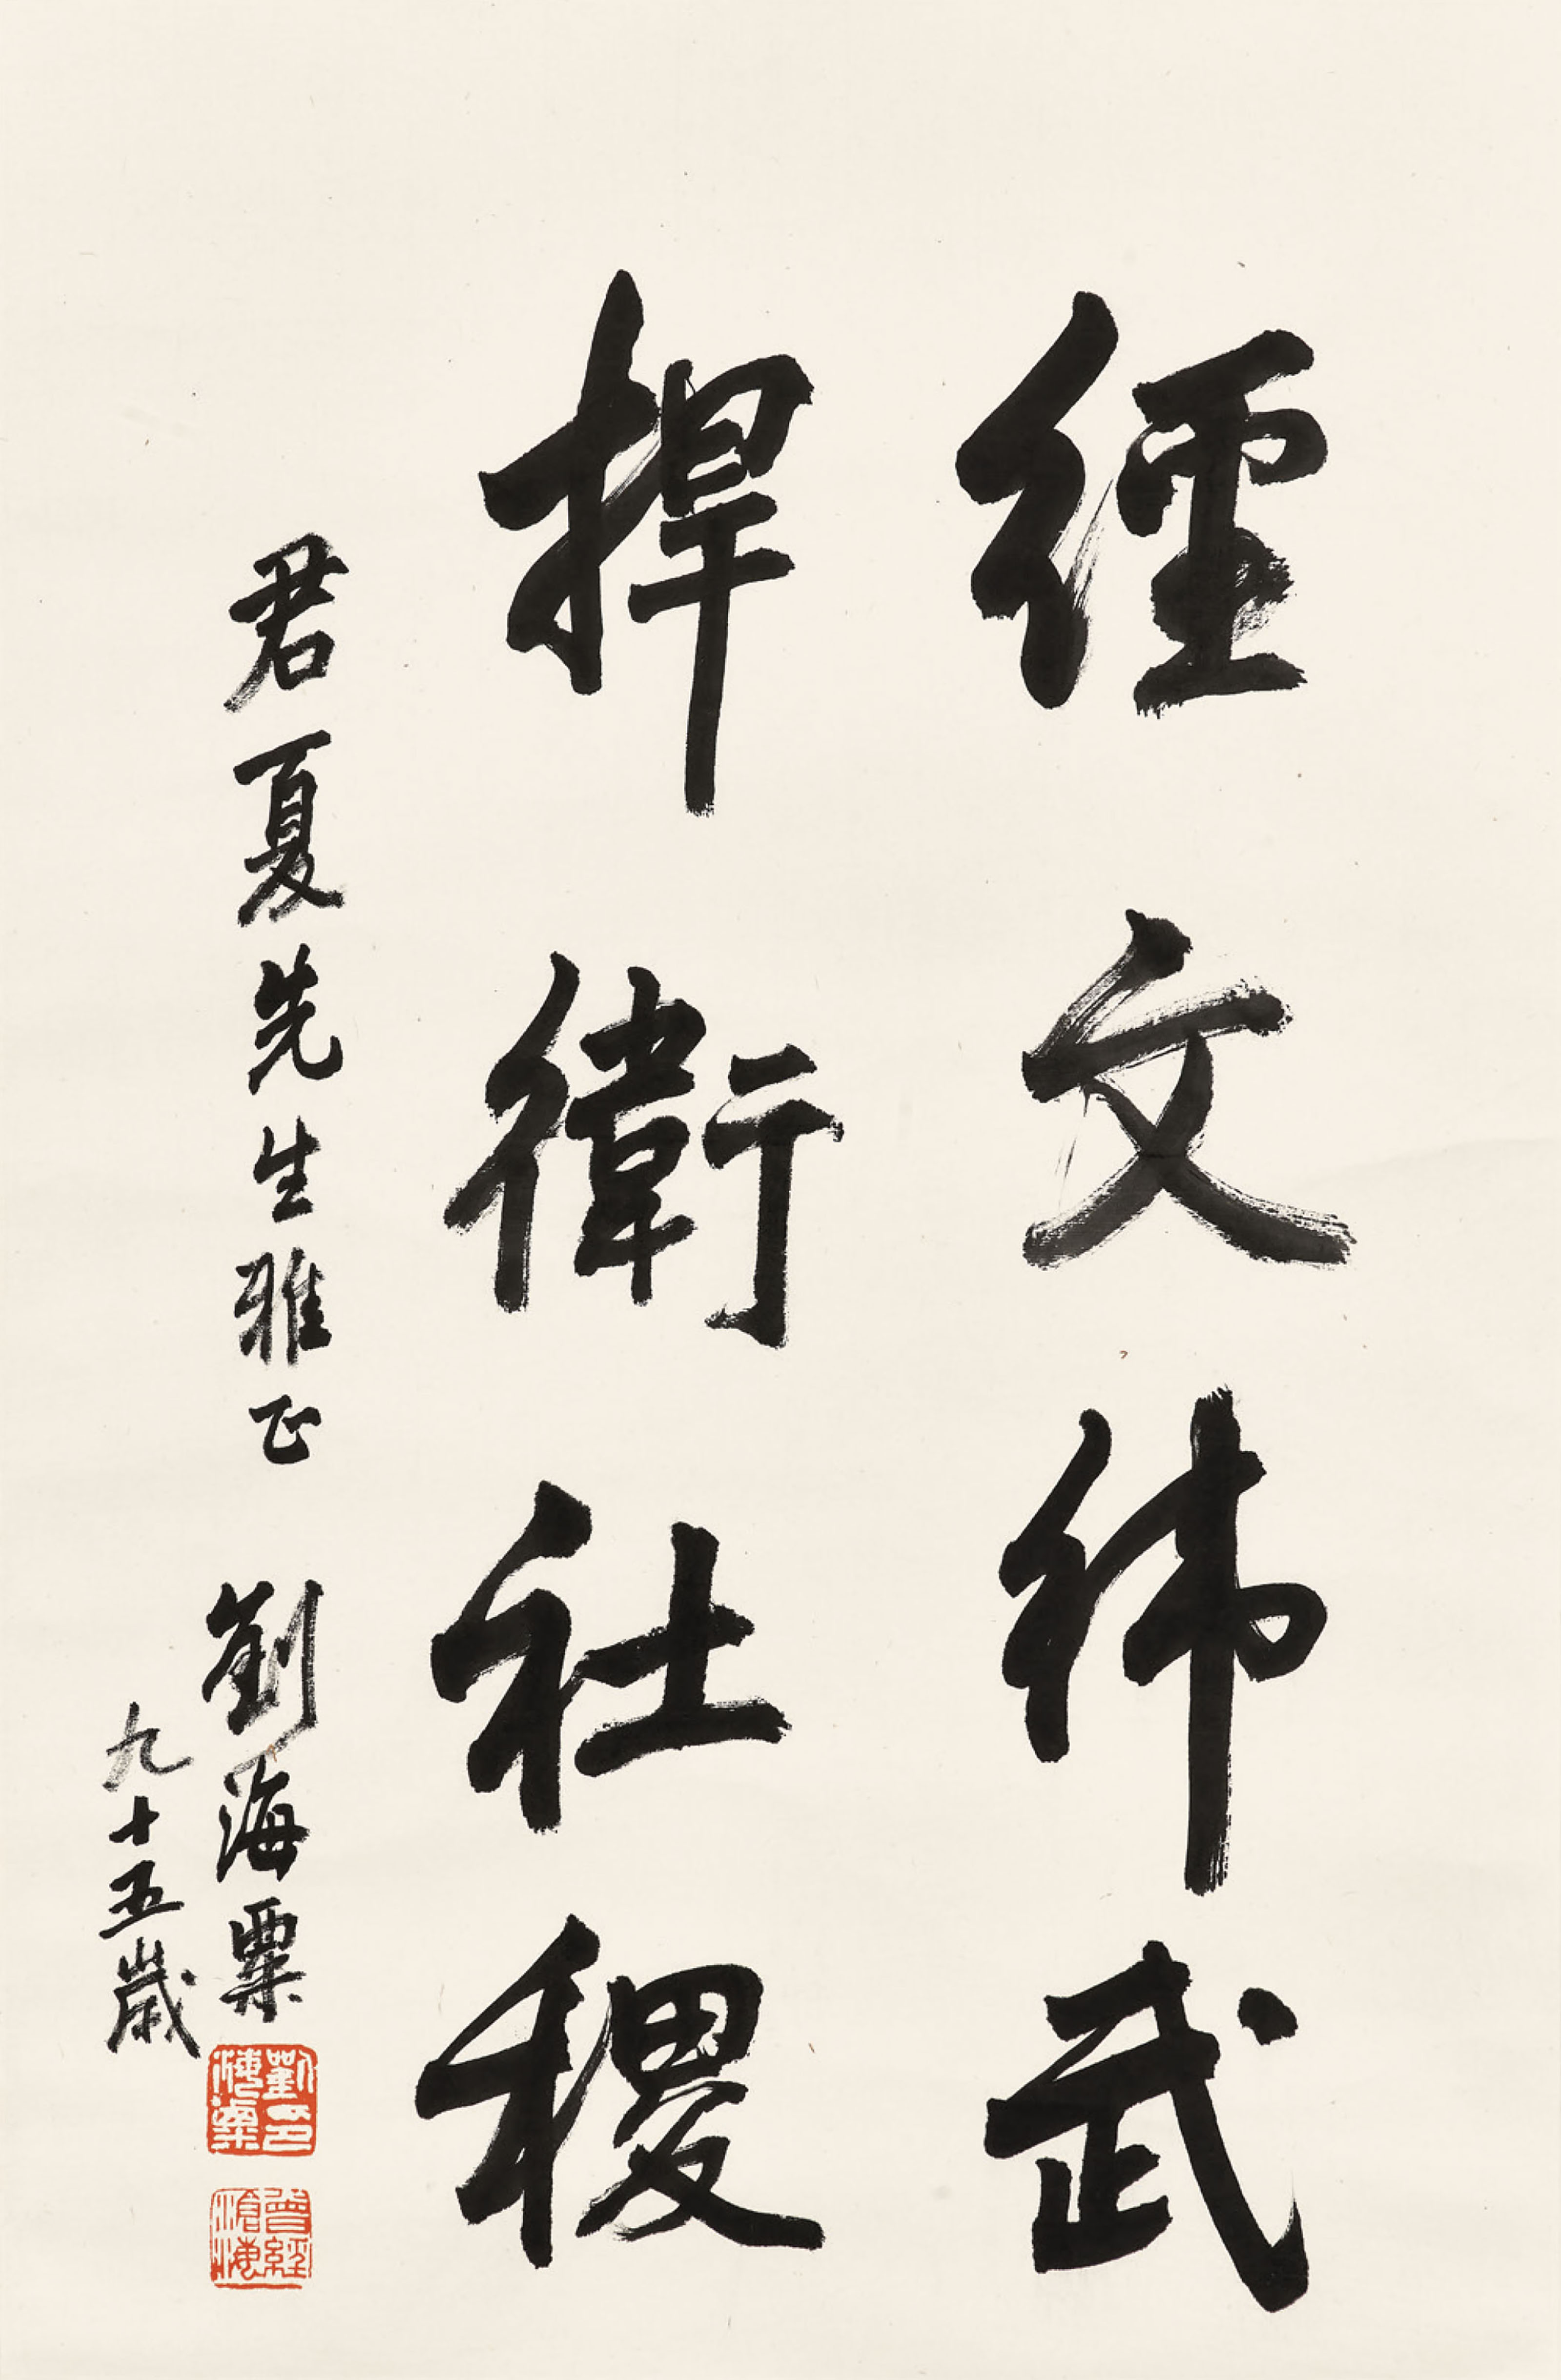 經文緯武
捍衛社稷
君夏先生雅正 劉海粟
九十五歲
劉海粟印
曾經滄海